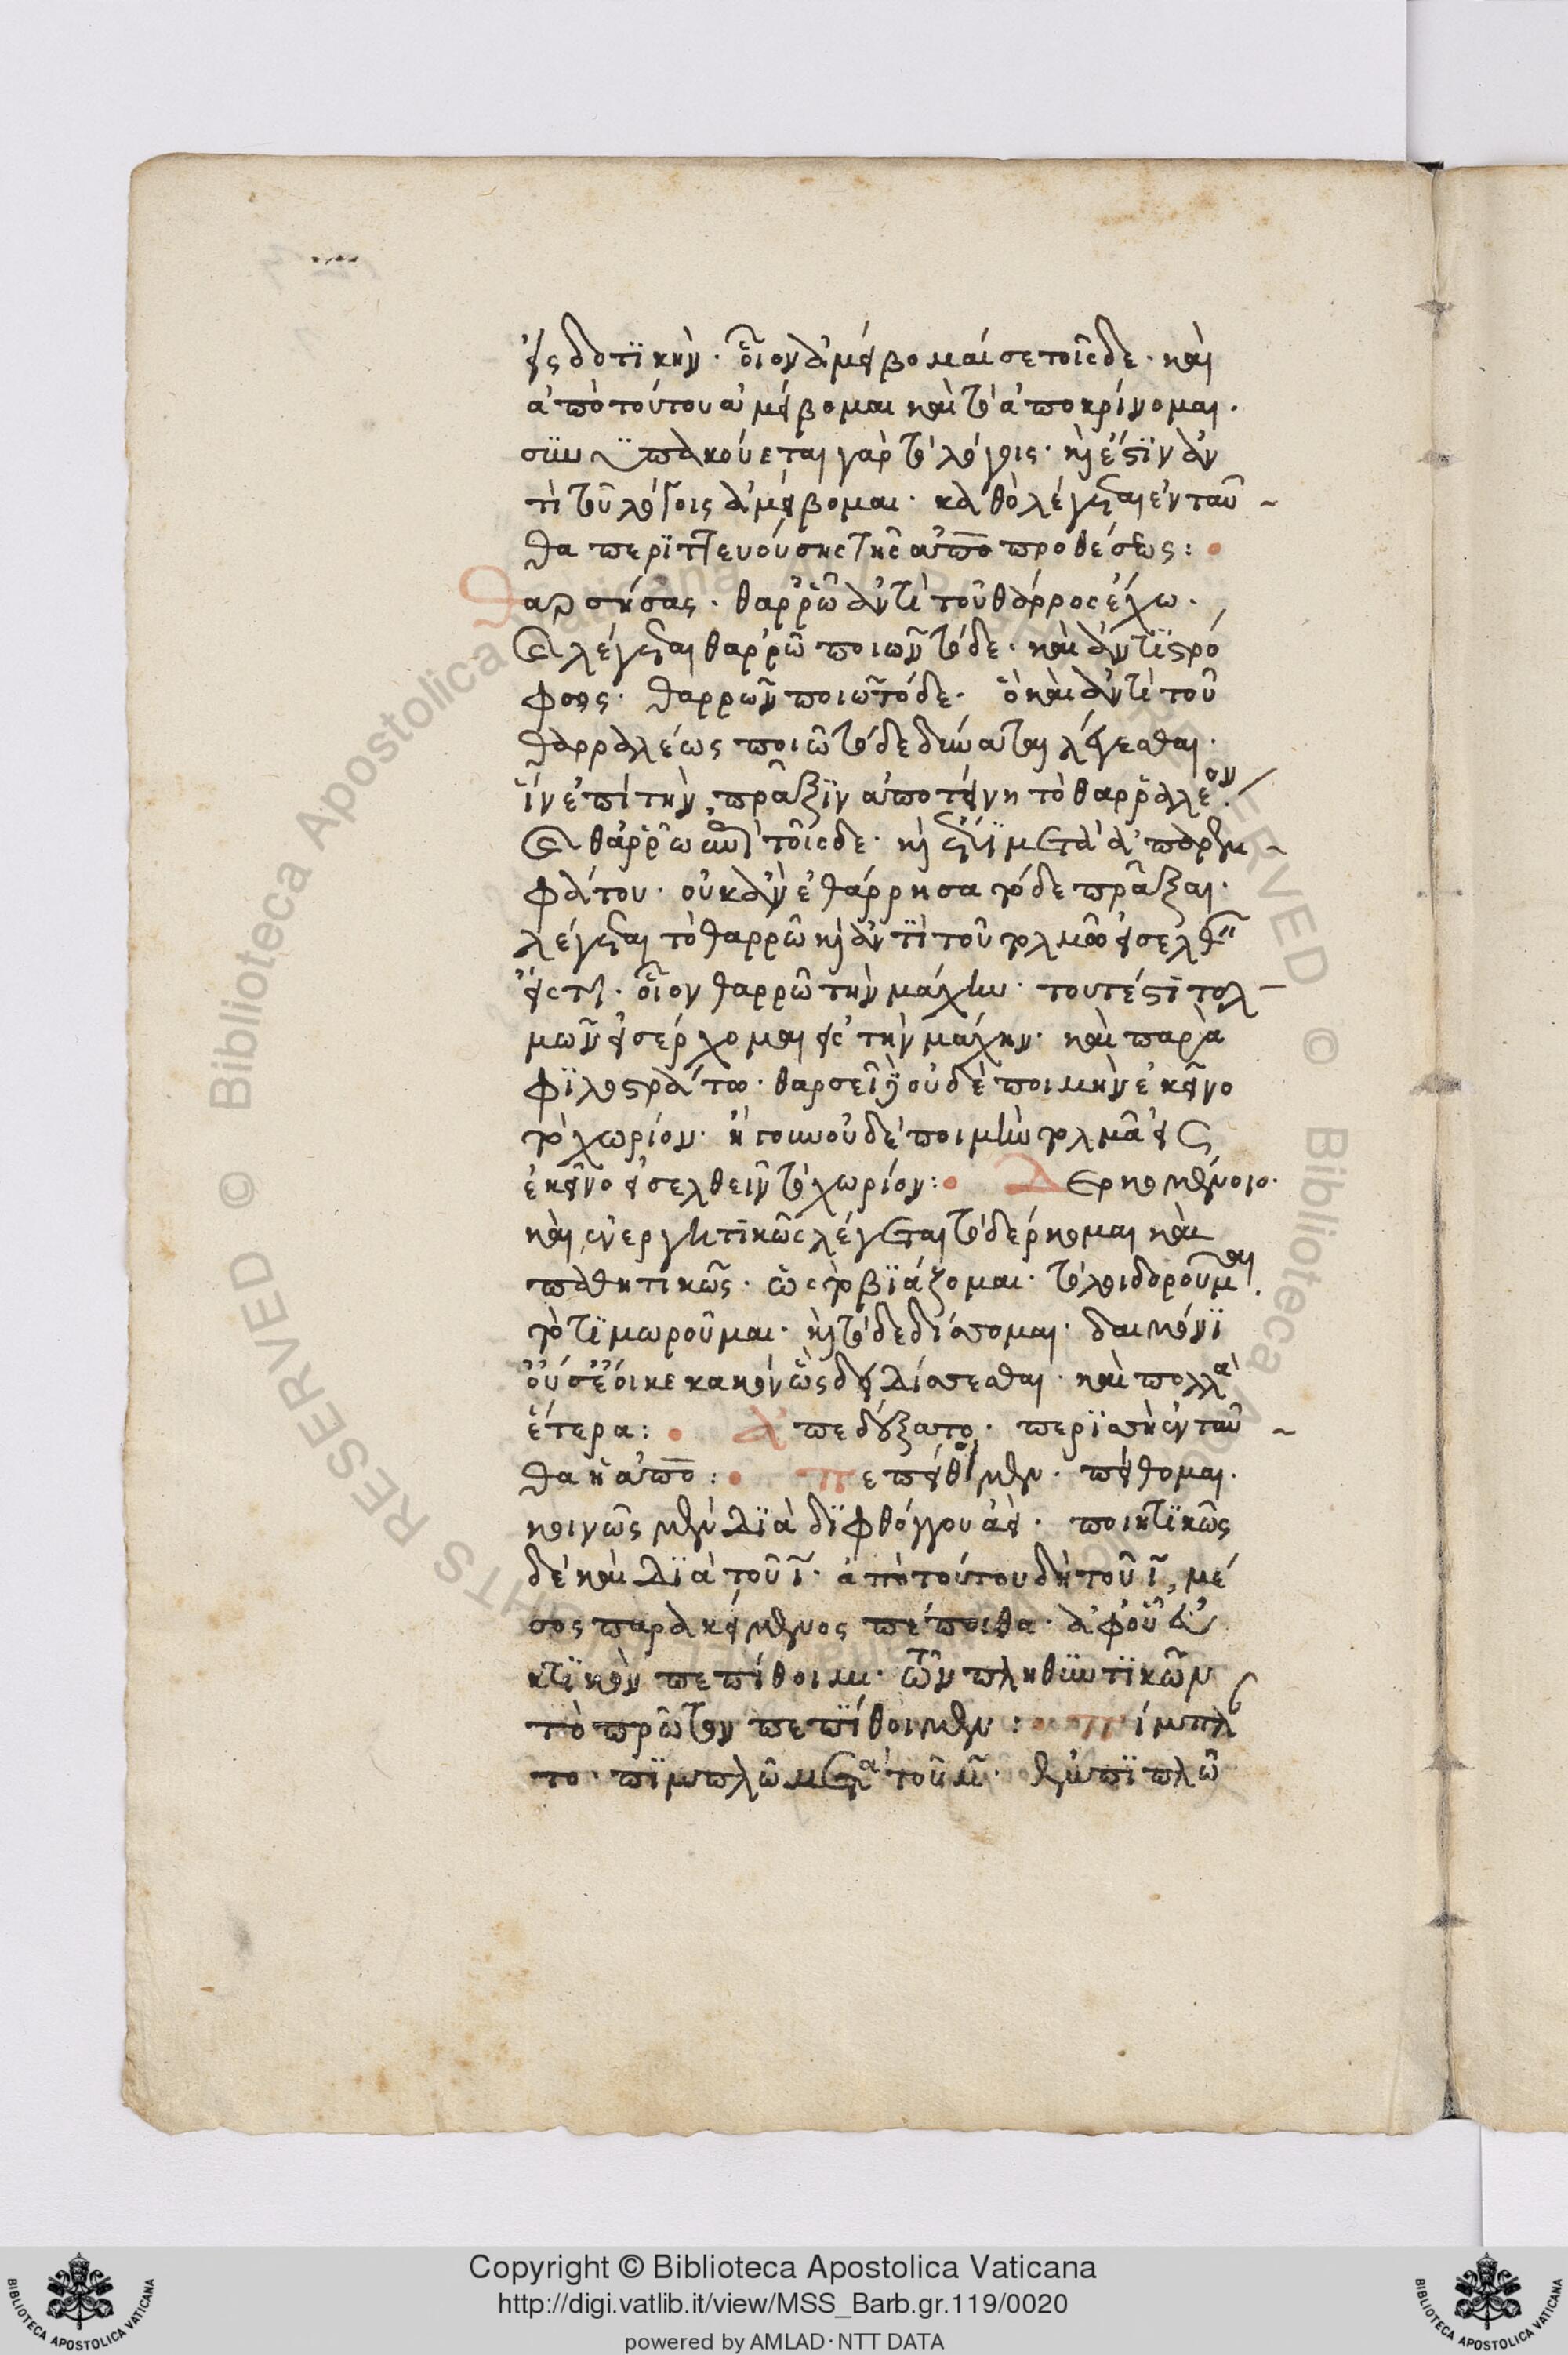 εἰς δοτϊκήν. οἷον ἀμείβομαί σε τοῖςδε. καὶ
ἀπὸ τούτου ἀμείβομαι καὶ τὸ ἀποκρίνομαι.
συνϋπακούεται γὰρ τὸ λόγοις. καὶ ἔστϊν ἀν
τὶ τοῦ λόγοις ἀμείβομαι. καθὸ λέγεται ἐνταῦ
θα περϊττευούσης τῆς ἀπὸ προθέσεως:
θαρσήσας. θαρρῶ ἀντὶ τοῦ θάρρος ἔχω.
καὶ λέγεται θαρρῶ ποιῶν τόδε. καὶ ἀντϊστρό
φως. θαρρῶν ποιῶ τόδε. ὃ καὶ ἀντὶ τοῦ
θαρραλέως ποιῶ τόδε δύναται λέγεσθαι.
ἵν' ἐπὶ τὴν πρᾶξϊν ἀποτείνη τὸ θαρραλέον.
καὶ θαρρῶ ἐπὶ τοῖςδε. καὶ ἔτϊ μετὰ ἀπαρεμ
φάτου. οὐκ ἂν ἐθάρρησα τόδε πρᾶξαι.
λέγεται τὸ θαρρῶ καὶ ἀντϊ τοῦ τολμῶ εἰσελθεῖν
εἴς τι. οἷον θαρρῶ τὴν μάχην. τουτέστϊ τολ
μῶν εἰσέρχομαι εἰς τὴν μάχην. καὶ παρὰ
φϊλοστράτω. θαρσεῖ γὰρ οὐδὲ ποιμὴν ἐκεῖνο
τὸ χωρίον. ἤτοι οὐδὲ ποιμὴν τολμᾶ εἰς
ἐκεῖνο εἰσελθεῖν τὸ χωρίον: Δερκομένοιο.
καὶ ἐνεργητϊκῶς λέγεται τὸ δέρκομαι καὶ
παθητικῶς. ὡς τὸ βϊάζομαι. τὸ λοιδοροῦμαι.
τὸ τϊμωροῦμαι. καὶ τὸ δεδίσσομαι. δαιμόνϊ
οὔ σε ἔοικε κακὸν ὣς δειδίσσεσθαι. καὶ πολλὰ
ἕτερα: ἀπεδύξατο. περϊσσὴ ἐνταῦ
θα ἡ ἀπὸ: πεπείθοιμεν. πείθομαι.
κοινῶς μὲν δϊὰ δϊφθόγγου ἀεὶ. ποιητϊκῶς
δὲ καὶ δϊὰ τοῦ ϊ. ἀπὸ τούτου δὴ τοῦ ϊ, μέ
σος παρακείμενος πέποιθα. ἀφ' οὗ εὐ
κτϊκὸν πεπίθοιμι. ὧν πληθυντϊκῶν
τὸ πρῶτον πεπϊθοιμεν: πίμπλα
το. πϊμπλῶ μετὰ τοῦ μ. ἐμπϊπλῶ